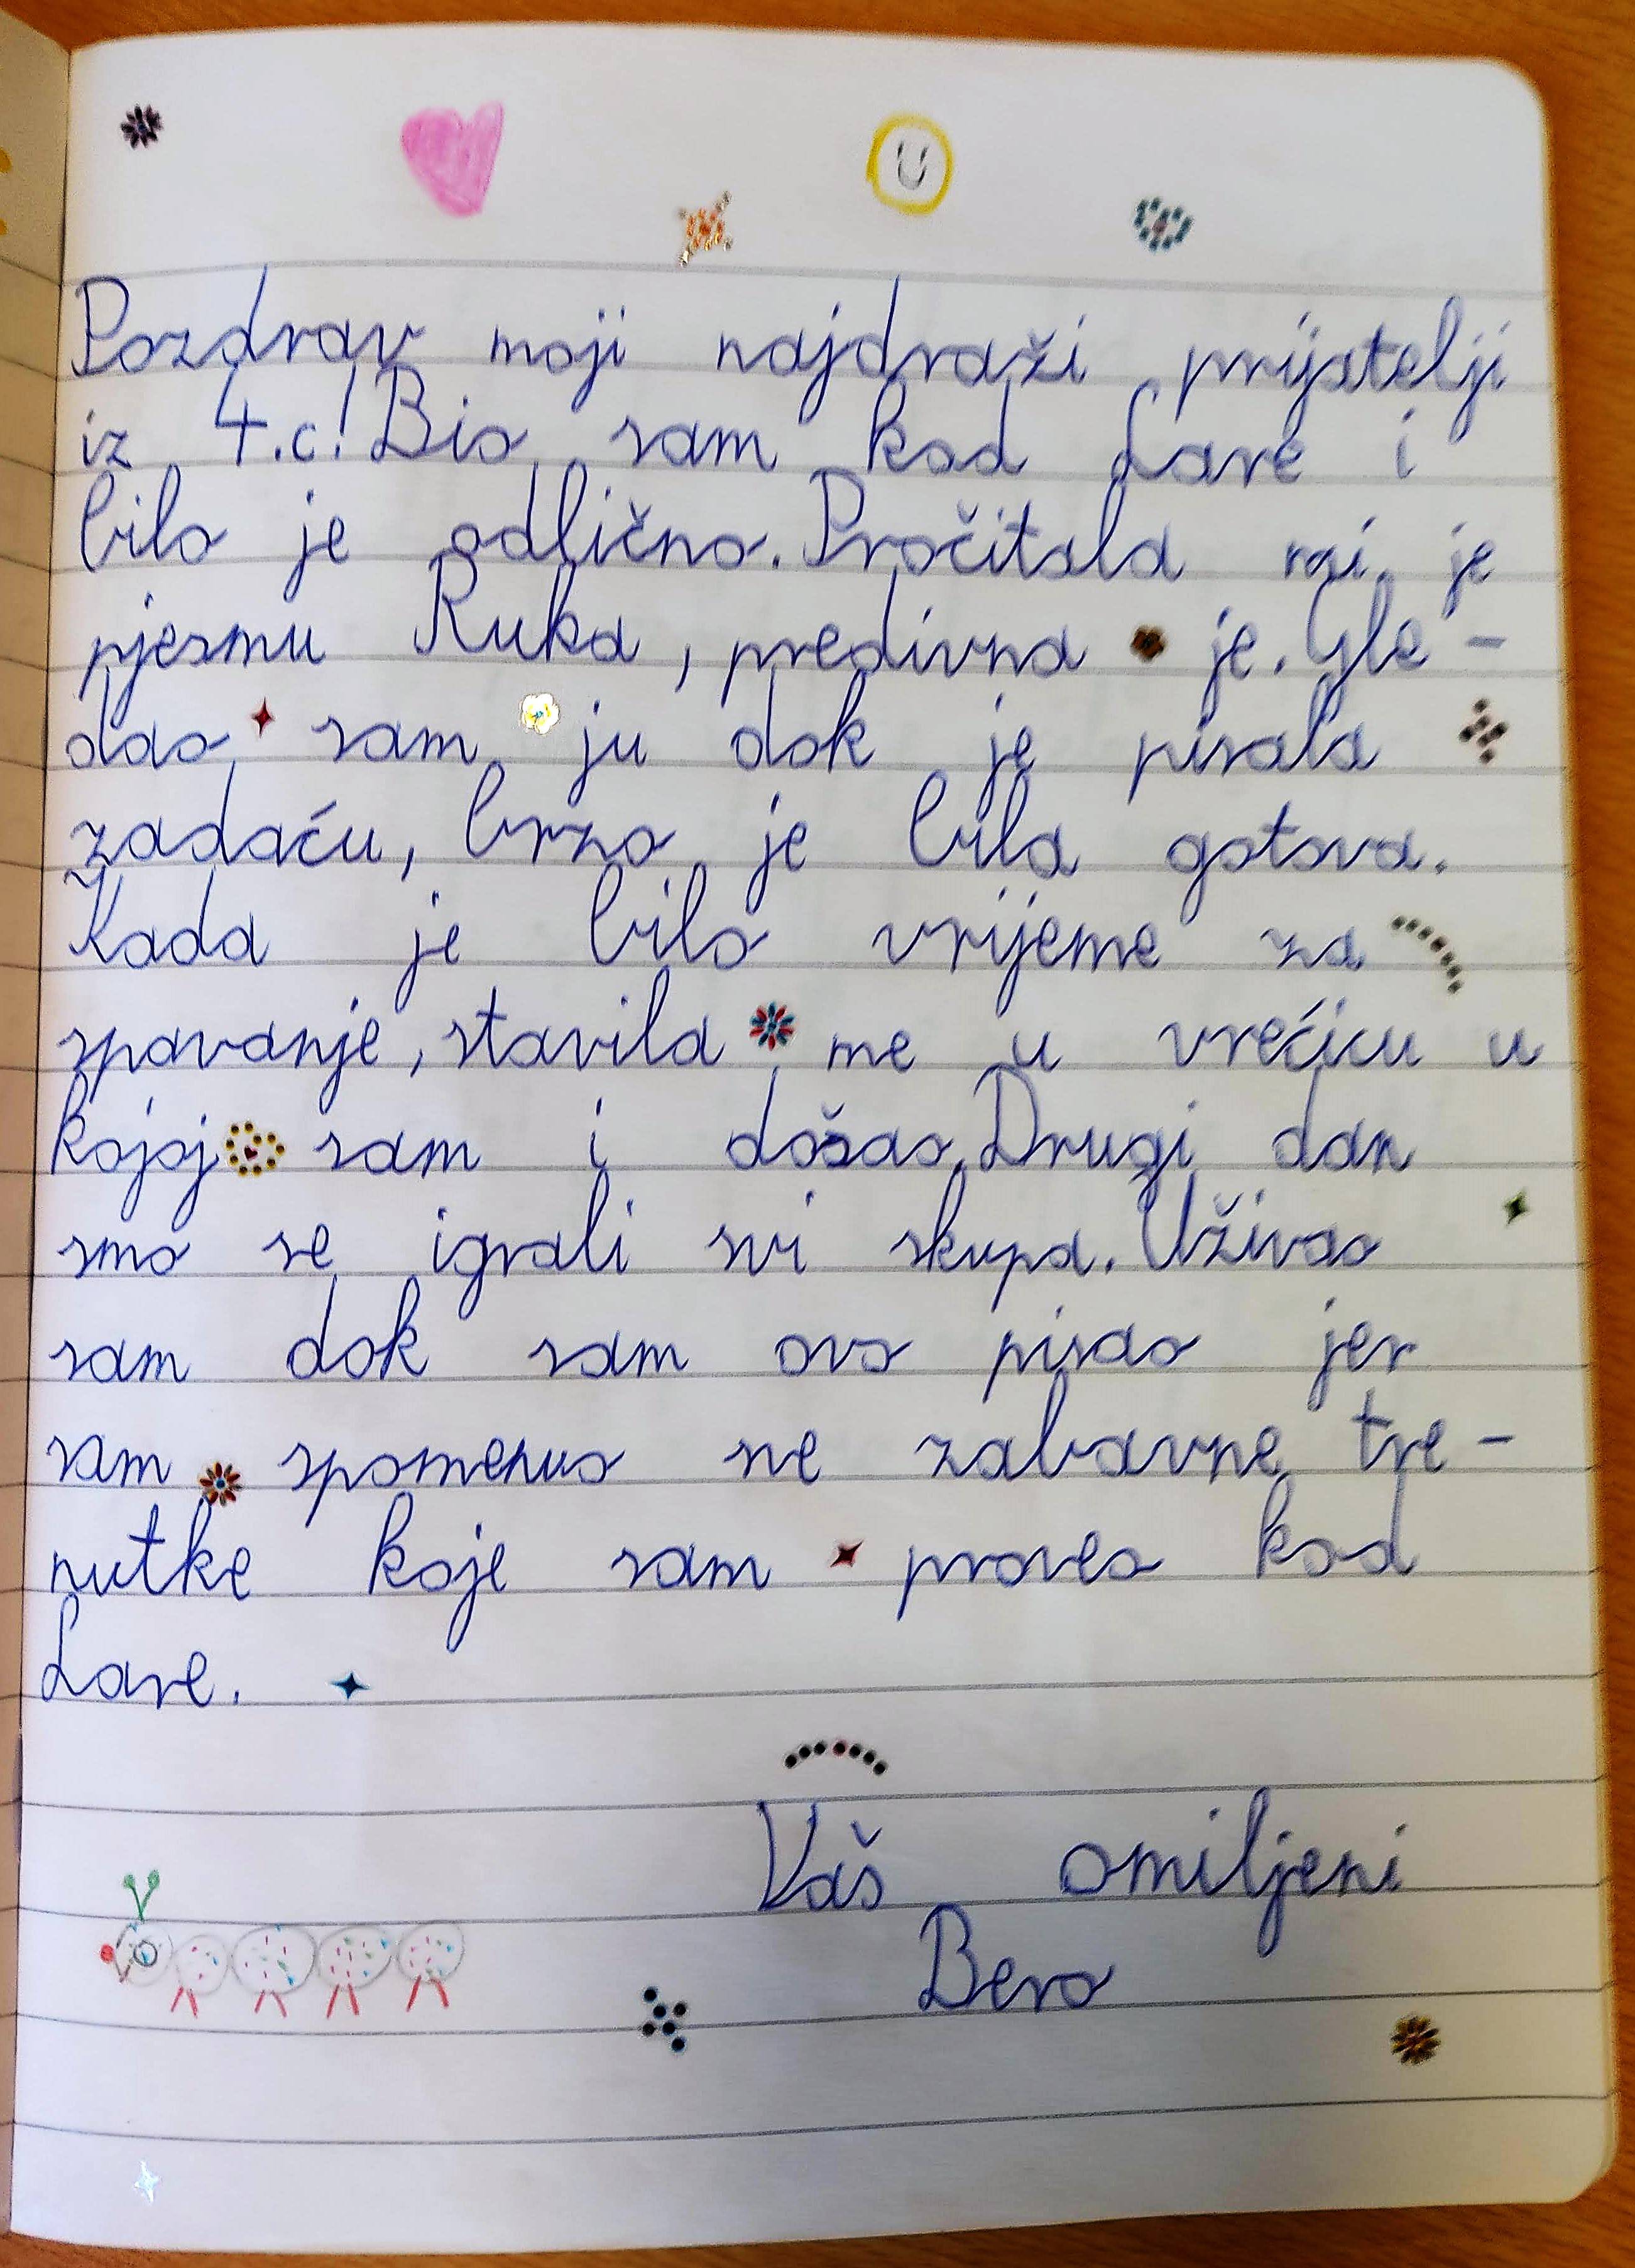 Pozdrav moji najdraži prijatelji
iz 4.c! Bio sam kod Lare i
bilo je odlično. Pročitala mi je
pjesmu Ruka, predivna je. Gle-
dao sam ju dok je pisala
zadaću, brzo je bila gotova.
Kada je bilo vrijeme za
spavanje, stavila me u vrećicu u
kojoj sam i došao. Drugi dan
smo se igrali svi skupa. Uživao
sam dok sam ovo pisao jer
sam spomenuo sve zabavne tre-
nutke koje sam proveo kod
Lare.
Vaš omiljeni
Bero